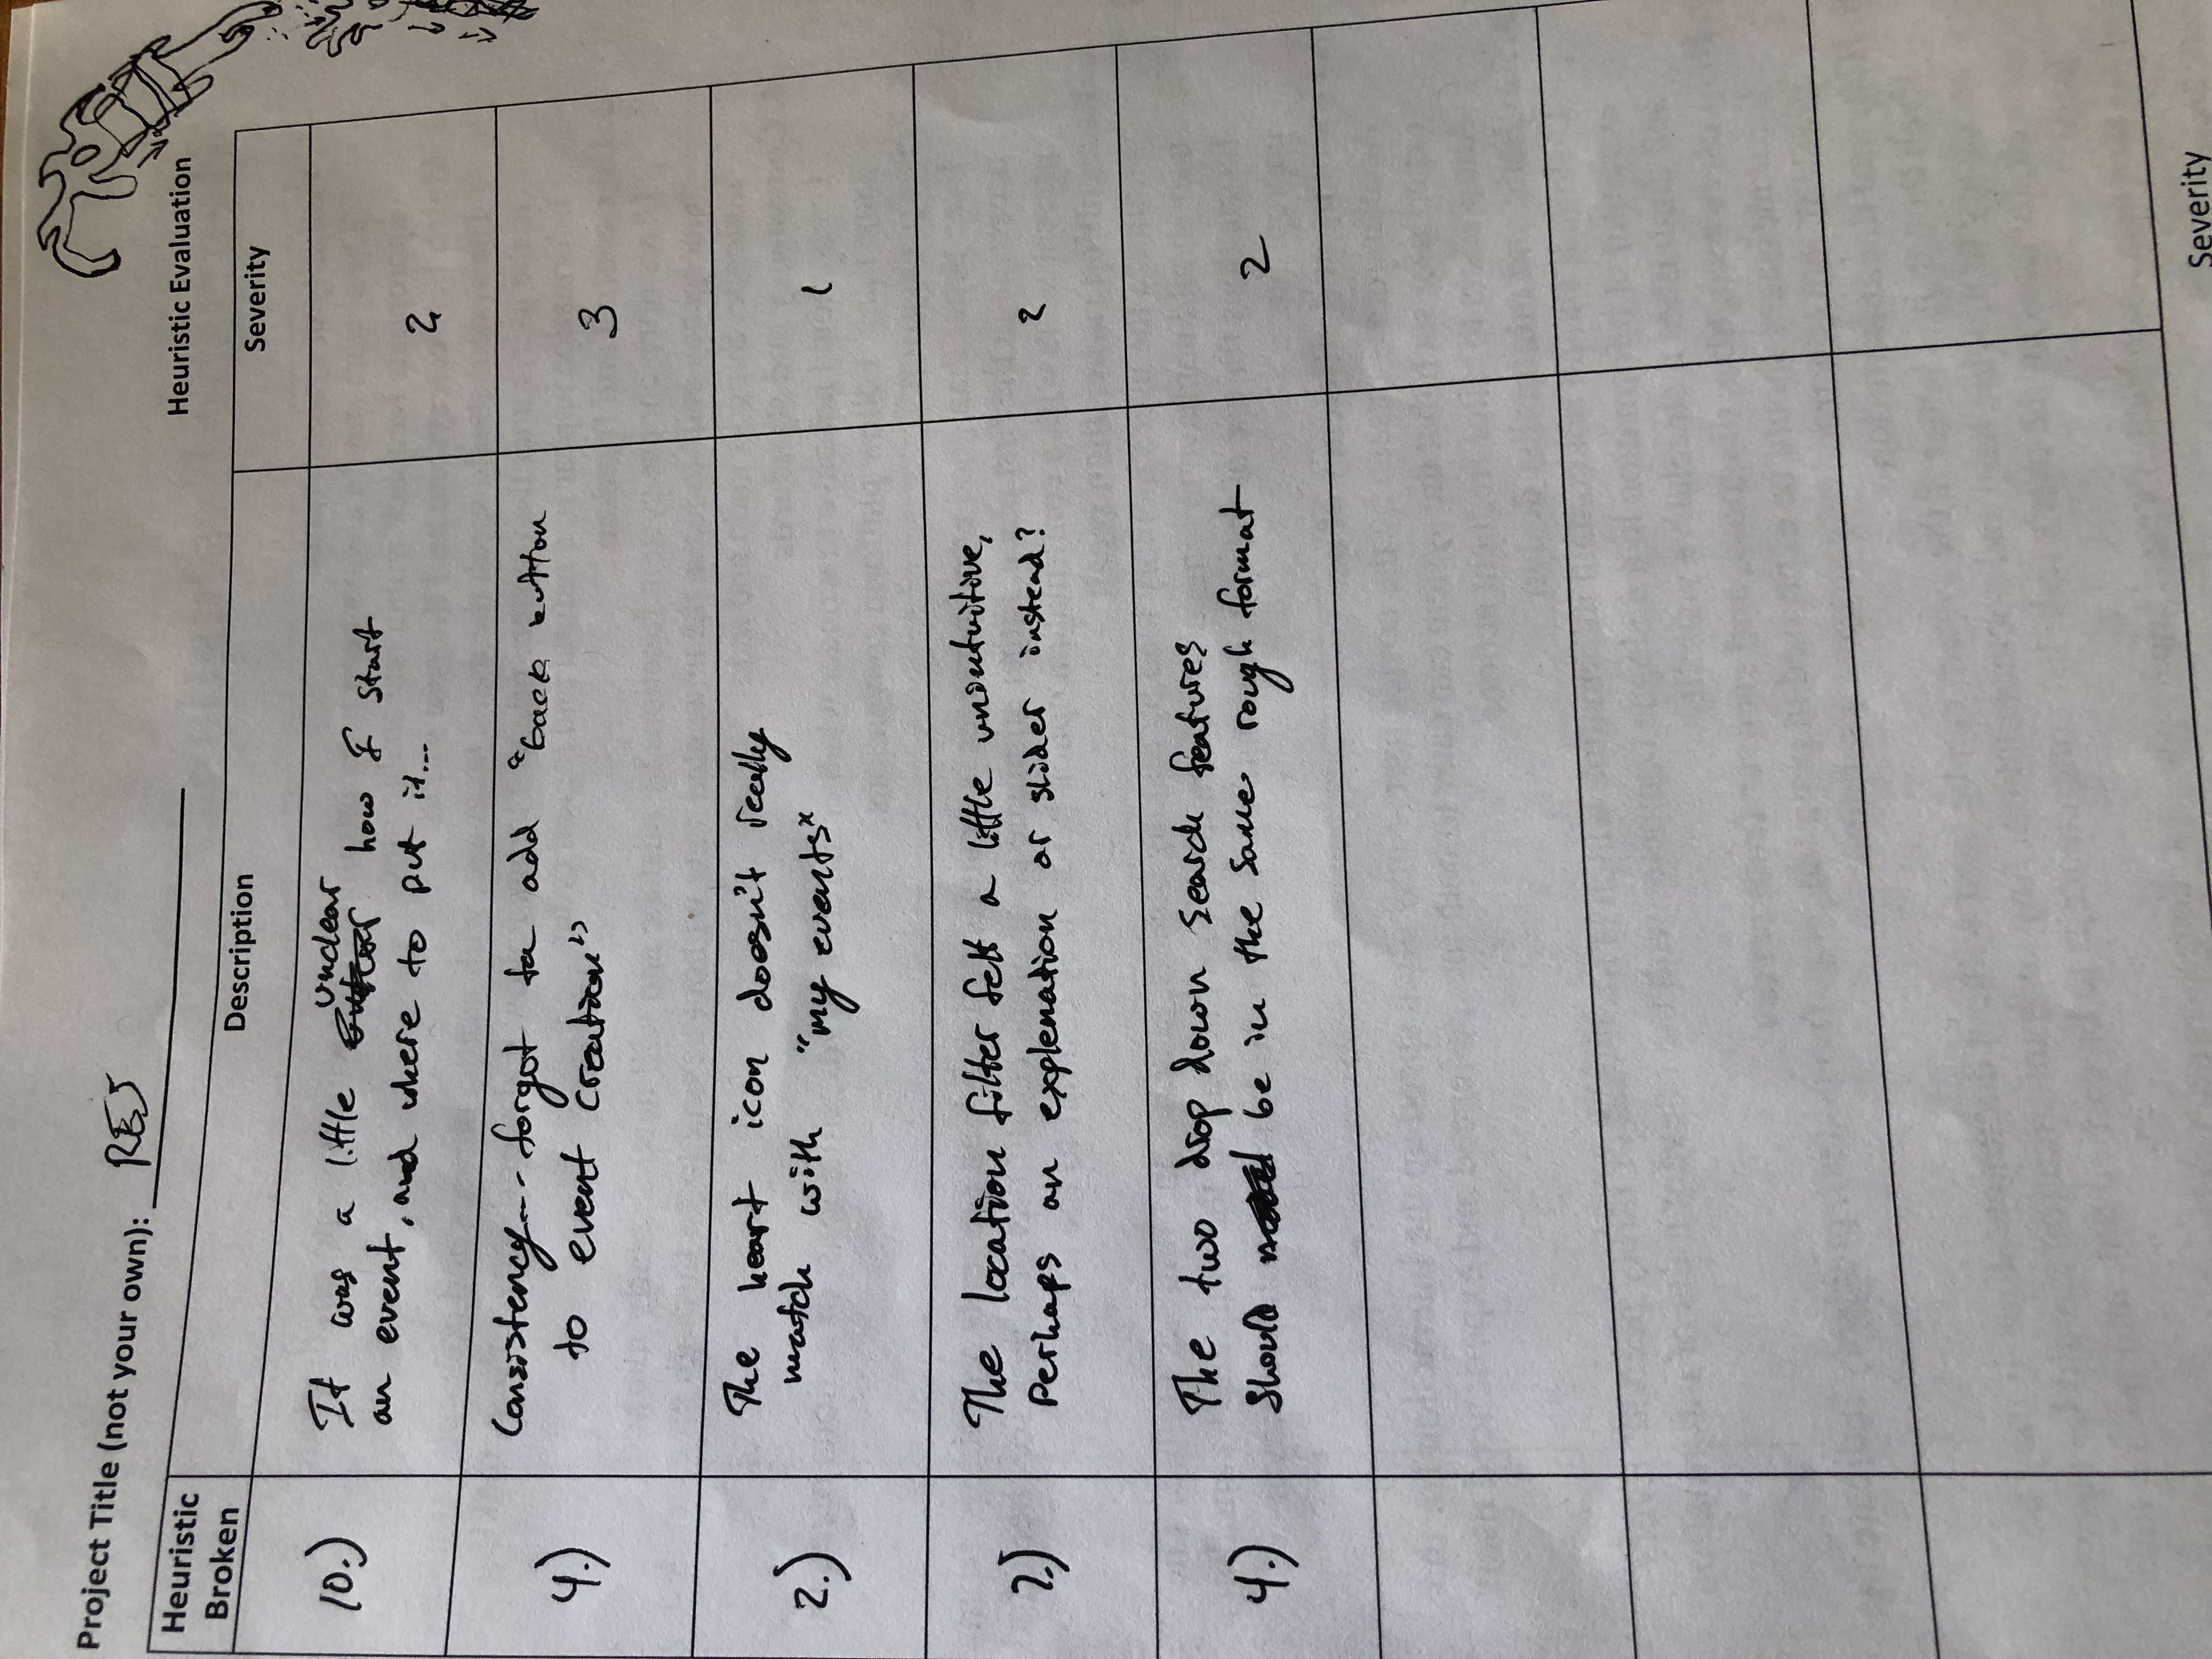 Project Title (not your own): RES
Heuristic Evaluation
Heuristic
Broken
Description
Severity
10.)
It was a little unclear how I start
an event, and where to put it...
2
4.)
Consistency... forgot to add "back button
to event creation"
3
2.)
The heart icon doesn't really
match with "my events"
1
The location filter felt a little unintuitive,
Perhaps an explenation or slider instead?
2
4.)
The two drop down search features
Should be in the same rough format
2
Severity